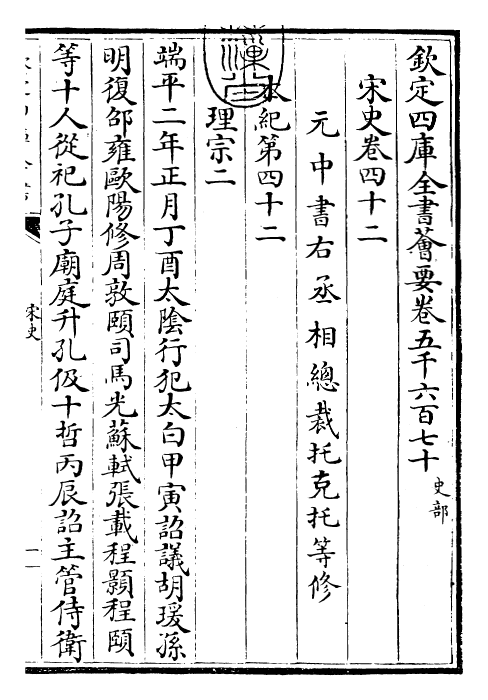 欽定四庫全書薈要卷五千六百七十
史部
宋史卷四十二
元中書右丞相總裁托克托等修
本紀第四十二
理宗二
端平二年正月丁酉太陰行犯太白甲寅詔議胡瑗孫
明復邵雍歐陽修周敦頤司馬光蘇軾張載程顥程頤
等十人從祀孔子廟庭升孔伋十哲丙辰詔主管侍衛
宋史
一